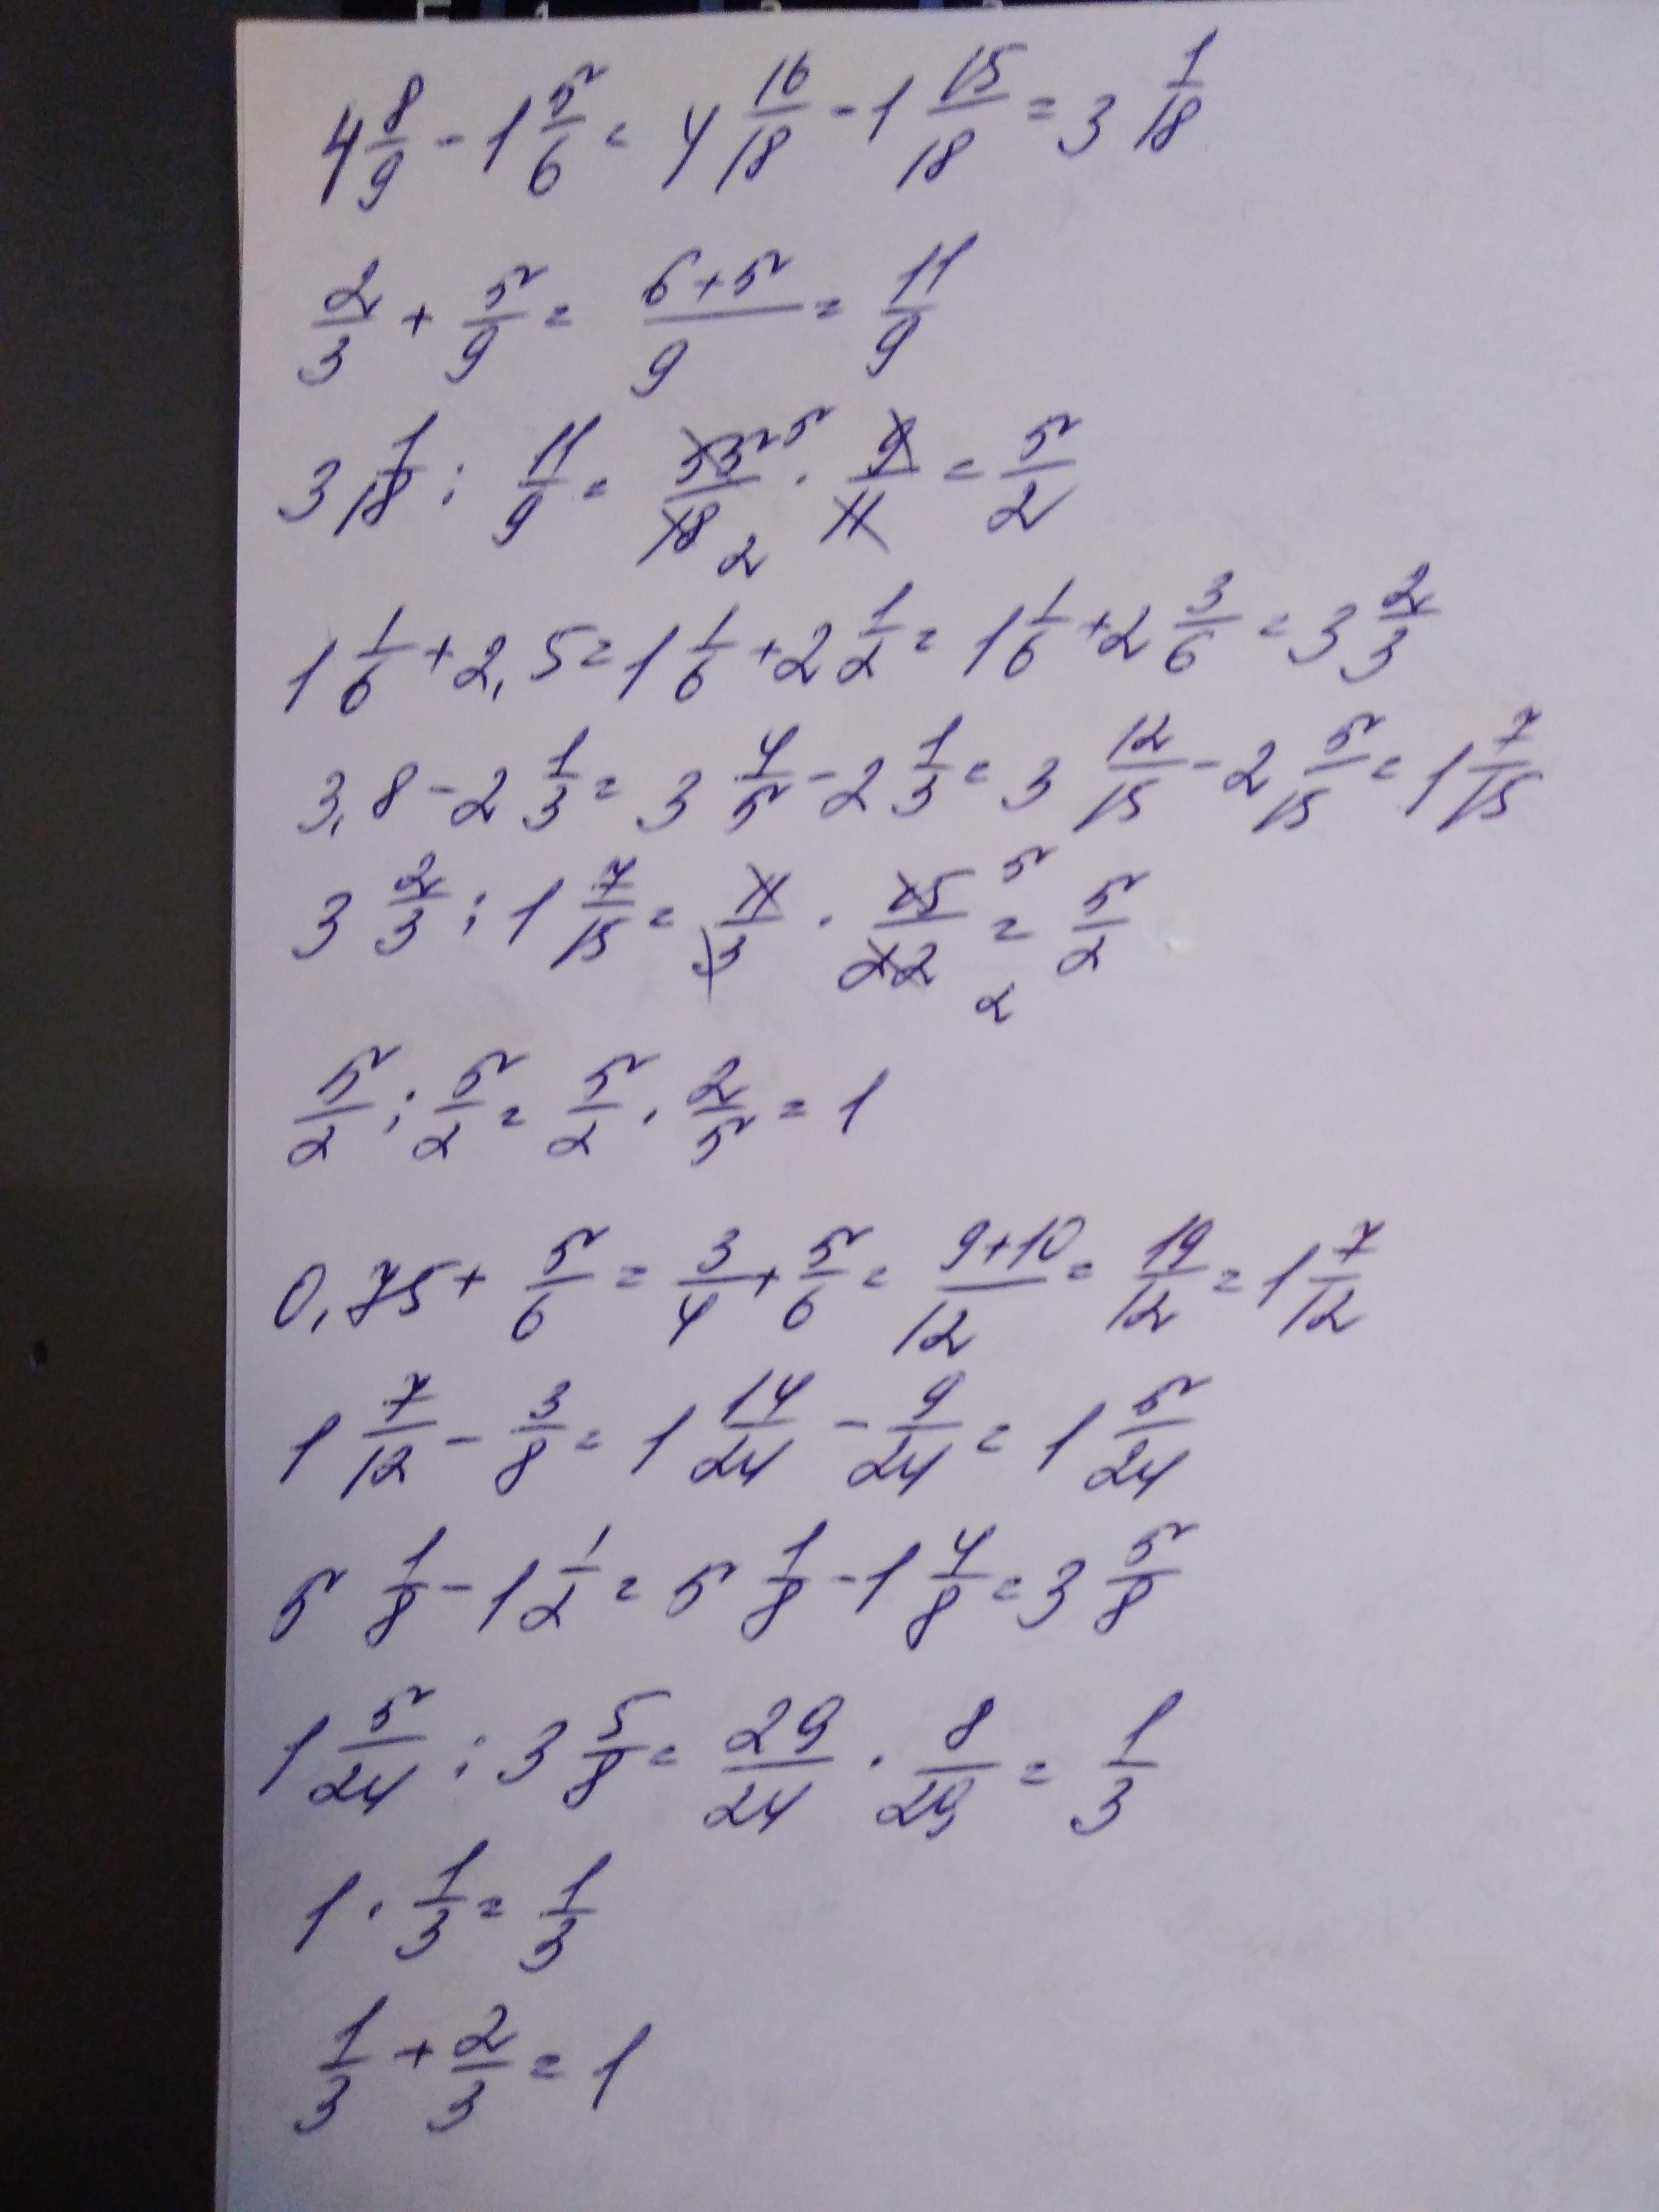 4 8/9 - 1 5/6 = 4 16/18 - 1 15/18 = 3 1/18
2/3 + 5/9 = (6+5)/9 = 11/9
3 1/18 : 11/9 = 55/18 · 9/11 = 5/2
1 1/6 + 2,5 = 1 1/6 + 2 1/2 = 1 1/6 + 2 3/6 = 3 2/3
3,8 - 2 1/3 = 3 4/5 - 2 1/3 = 3 12/15 - 2 5/15 = 1 7/15
3 2/3 : 1 7/15 = 11/3 · 15/22 = 5/2
5/2 : 5/2 = 5/2 · 2/5 = 1
0,75 + 5/6 = 3/4 + 5/6 = (9+10)/12 = 19/12 = 1 7/12
1 7/12 - 3/8 = 1 14/24 - 9/24 = 1 5/24
5 1/8 - 1 1/2 = 5 1/8 - 1 4/8 = 3 5/8
1 5/24 : 3 5/8 = 29/24 · 8/29 = 1/3
1 · 1/3 = 1/3
1/3 + 2/3 = 1